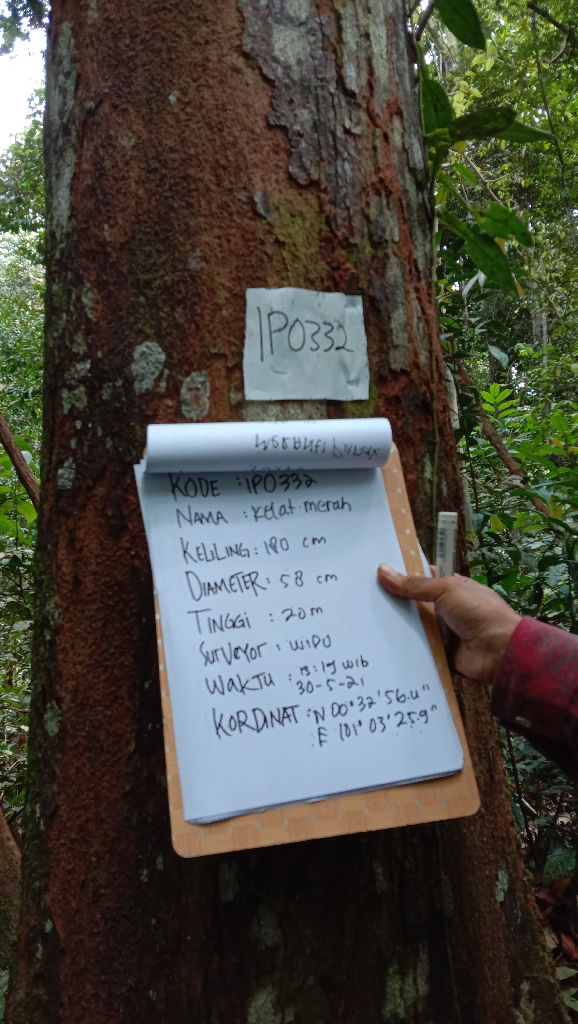 IPO332
KODE : IPO332
NAMA : Kelat merah
KELILING : 180 cm
DIAMETER : 58 cm
TINGGI : 20 m
SURVEYOR : WIDU
WAKTU : 13:19 WIB
30-5-21
KORDINAT : N 00° 32' 56.4"
E 101° 03' 25.9"